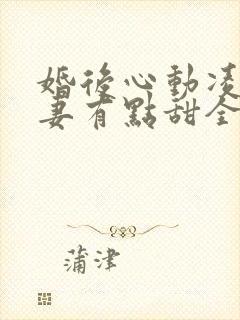 婚後心動凌
妻有點甜全
蒲津